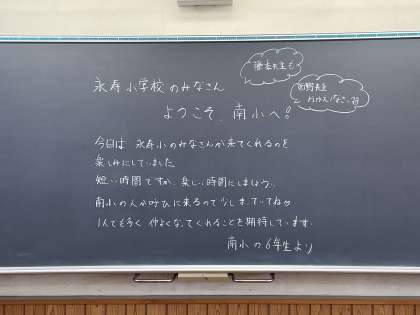 永寿小学校のみなさん
ようこそ、南小へ!
藤本先生も
今日は 永寿小のみなさんが来てくれるのを
楽しみにしていました
短い時間ですが、楽しい時間にしましょう。
南小の人が呼びに来るので少しまっていてね
1人でも多く 仲よくなってくれることを期待しています。
南小の6年生より